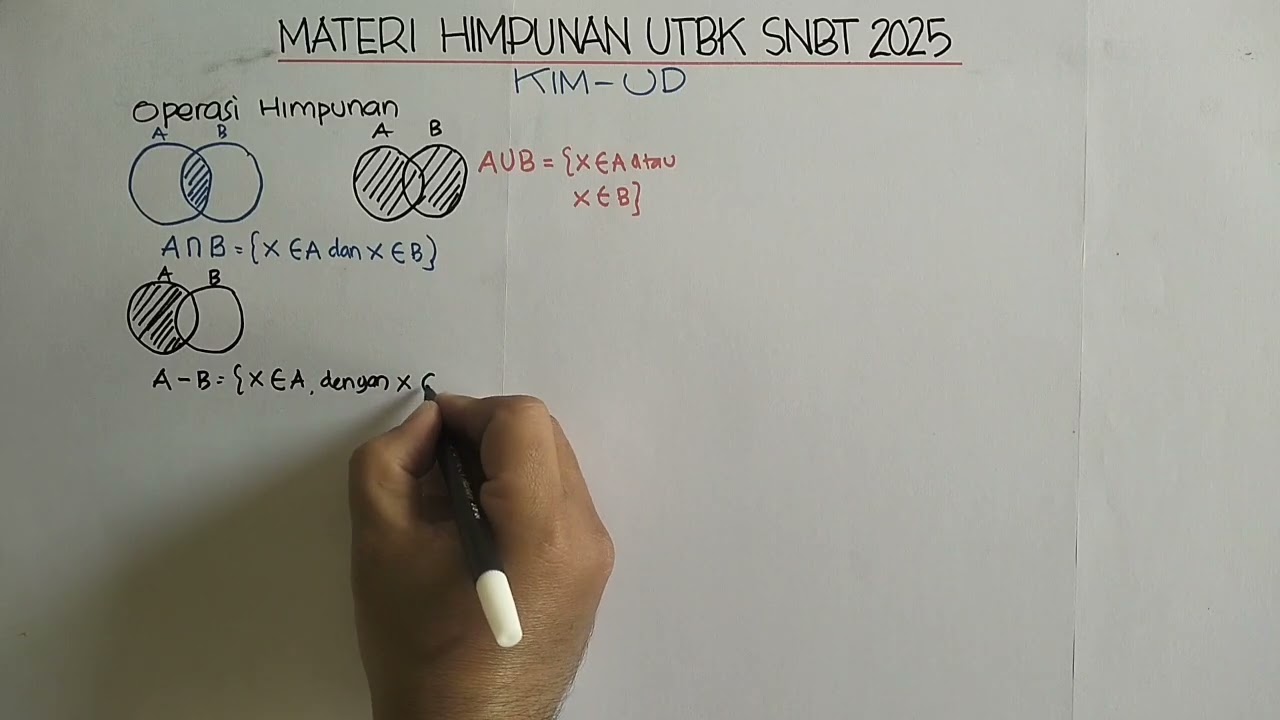 MATERI HIMPUNAN UTBK SNBT 2025
KIM-UD
Operasi Himpunan
A B
A B
A∪B = {x ∈ A atau
x ∈ B}
A∩B = {x ∈ A dan x ∈ B}
A B
A - B = {x ∈ A, dengan x